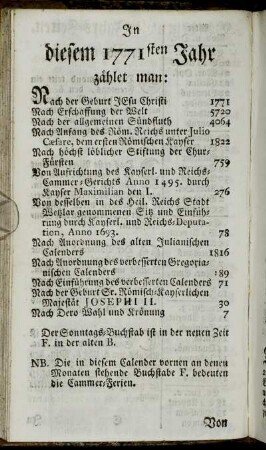 In
diesem 1771sten Jahr
zählet man:
Nach der Geburt JEsu Christi 1771
Nach Erschaffung der Welt 5720
Nach der allgemeinen Sündfluth 4064
Nach Anfang des Röm. Reichs unter Julio
Cæsare, dem ersten Römischen Kayser 1822
Nach höchst löblicher Stiftung der Chur-
Fürsten 759
Von Aufrichtung des Kayserl. und Reichs-
Cammer-Gerichts Anno 1495. durch
Kayser Maximilian den I. 276
Von desselben in des Heil. Reichs Stadt
Wetzlar genommenen Sitz und Einfüh-
rung durch Kayserl. und Reichs-Deputa-
tion, Anno 1693. 78
Nach Anordnung des alten Julianischen
Calenders 1816
Nach Anordnung des verbesserten Gregoria-
nischen Calenders 189
Nach Einführung des verbesserten Calenders 71
Nach der Geburt Sr. Römisch-Kayserlichen
Majestät JOSEPHI II. 30
Nach Dero Wahl und Krönung 7
Der Sonntags-Buchstab ist in der neuen Zeit
F. in der alten B.
NB. Die in diesem Calender vornen an denen
Monaten stehende Buchstabe F. bedeuten
die Cammer-Ferien.
Von